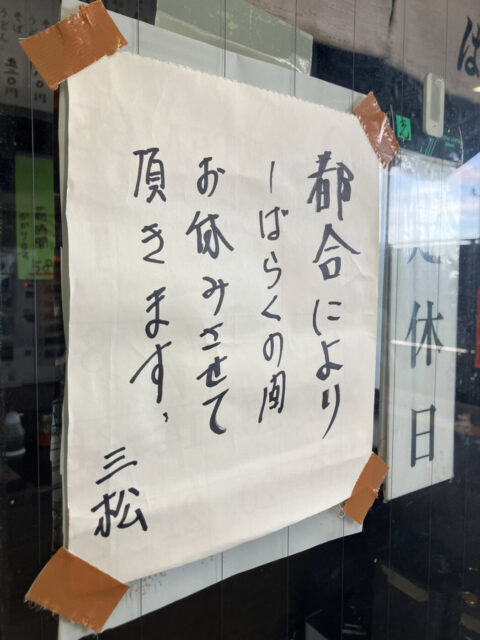 都合により
しばらくの間
お休みさせて
頂きます、
三松
休日